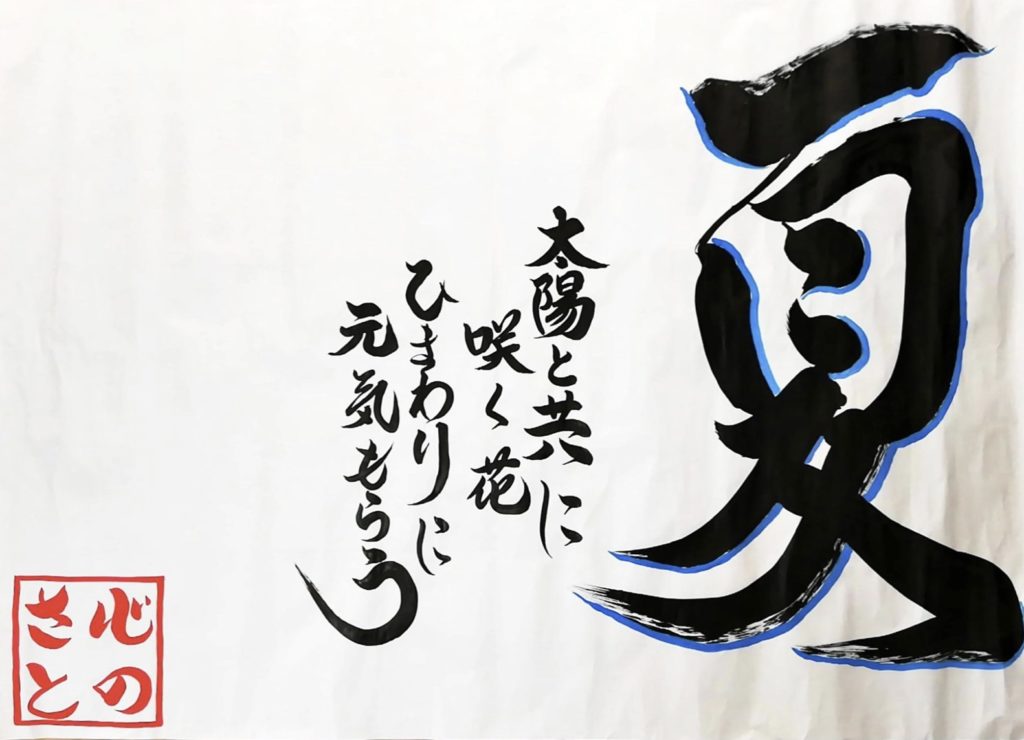 夏
太陽と共に
咲く花
ひまわりに
元気もらう
心の
さと